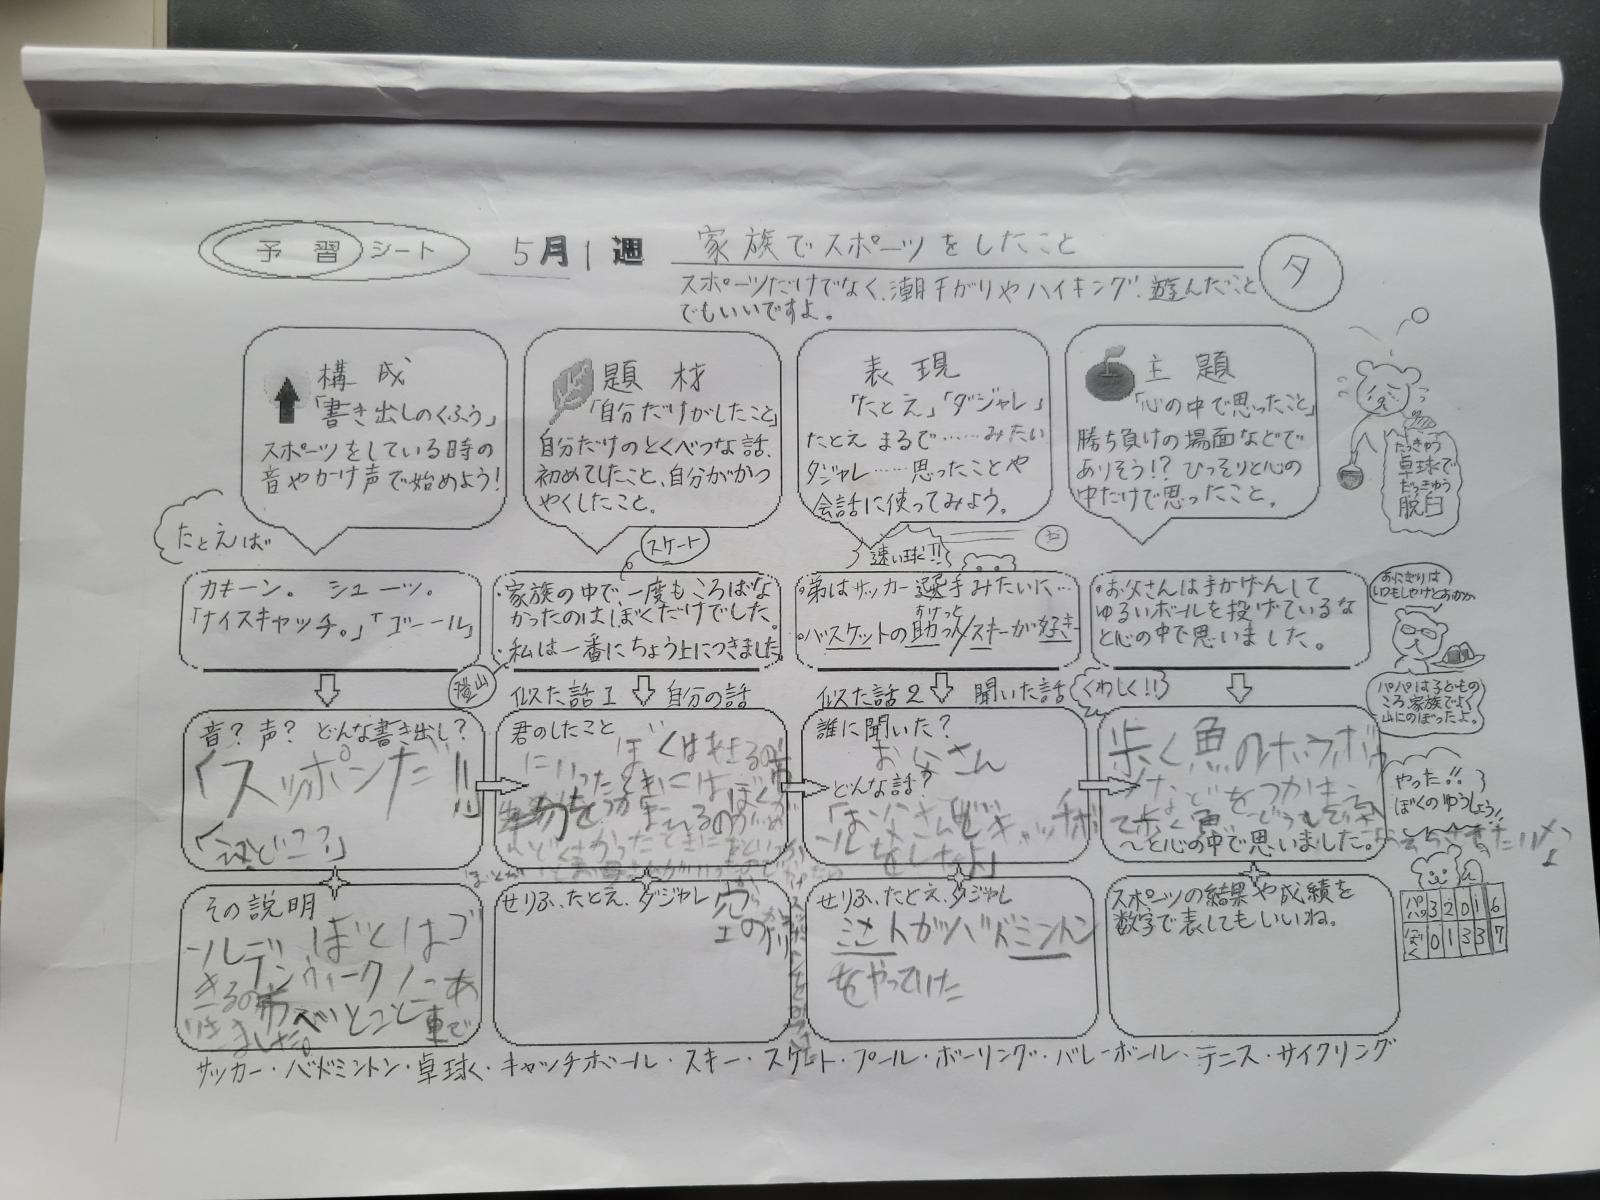 予習シート 5月1週 家族でスポーツをしたこと タ
スポーツだけでなく、潮干がりやハイキング、遊んだこと
でもいいですよ。
構成
「書き出しのくふう」
スポーツをしている時の
音やかけ声で始めよう!
題材
「自分だけがしたこと」
自分だけのとくべつな話、
初めてしたこと、自分がかつ
やくしたこと。
表現
「たとえ」「ダジャレ」
たとえ まるで……みたい
ダジャレ……思ったことや
会話に使ってみよう。
主題
「心の中で思ったこと」
勝ち負けの場面などで
ありそう!? ひっそりと心の
中だけで思ったこと。
たっきゅう
卓球で
だっきゅう
脱臼
たとえば
カキーン。 シューッ。
「ナイスキャッチ。」「ゴール」
スケート
・家族の中で一度もころばな
かったのはぼくだけでした。
・私は一番にちょう上につきました
登山
速い球!!
・弟はサッカー選手みたいに…
おけっと
・バスケットの助っ人/スキーが好き
・お父さんは手かげんして
ゆるいボールを投げているな
と心の中で思いました。
おにぎりは
いつもしゃけとおかか
パパは子どもの
ころ、家族でよく
山にのぼったよ。
音? 声? どんな書き出し?
「スッポンだ!!」
似た話1 自分の話
君のしたこと
似た話2 聞いた話
誰に聞いた?
お父さん
どんな話?
「お父さん
キャッチボ
ールをしたよ」
くわしく!!
歩く魚のホウボウ
などをつかま
て歩く魚
~と心の中で思いました。
やった!!
ぼくのゆうしょう!
その説明
ぼくはゴ
ールデンウィークに
いきました。
車で
せりふ、たとえ、ダジャレ
せりふ、たとえ、ダジャレ
ミントがバドミントン
をやっていた
スポーツの結果や成績を
数字で表してもいいね。
パパ 3 2 0 1 6
ぼく 0 1 3 3 7
サッカー・バドミントン・卓球・キャッチボール・スキー・スケート・プール・ボーリング・バレーボール・テニス・サイクリング